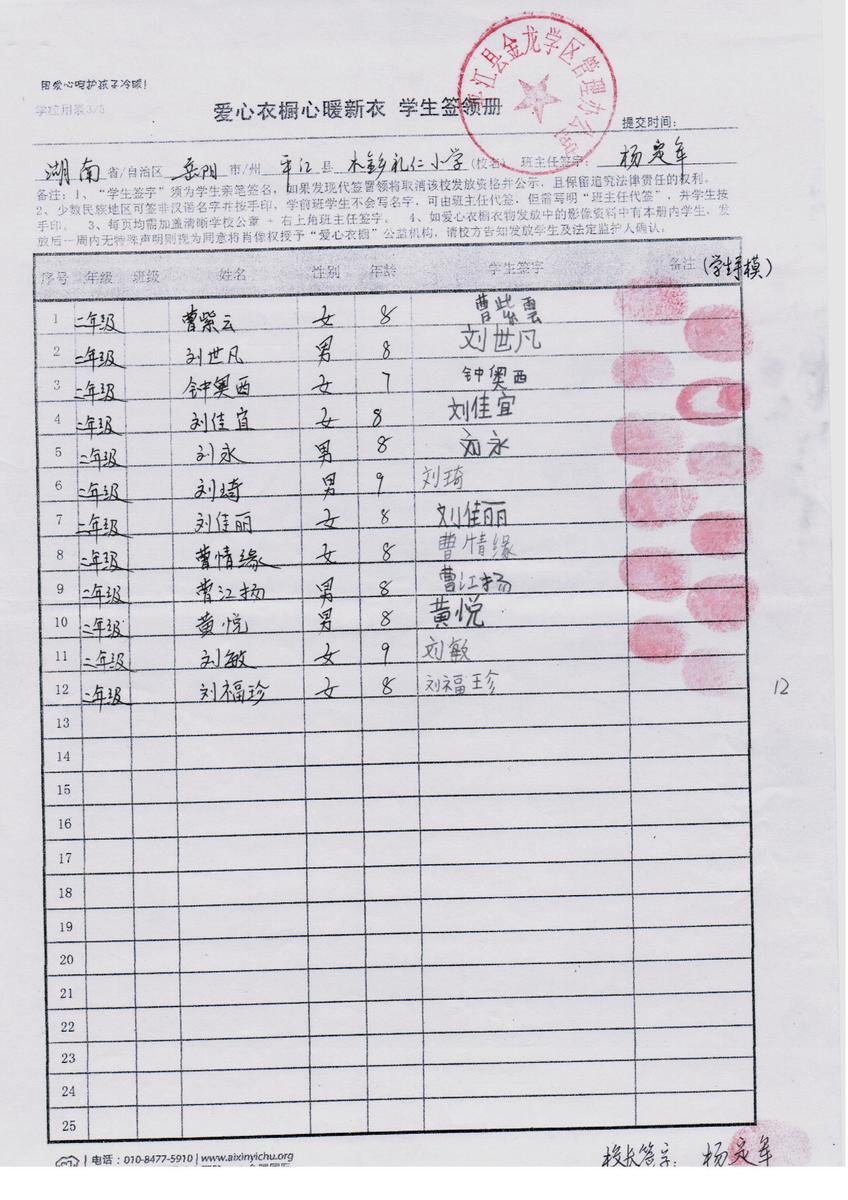 用爱心呵护孩子冷暖!
学校用表3/5
爱心衣橱心暖新衣 学生签领册
平江县金龙学区管理办公
提交时间:
湖南 省/自治区 岳阳 市/州 平江 县 木金乡礼仁小学 (校名) 班主任签字: 杨定军
备注: 1、“学生签字”须为学生亲笔签名,如果发现代签冒领将取消该校发放资格并公示,且保留追究法律责任的权利。
2、少数民族地区可签非汉语名字并按手印,学前班学生不会写名字,可由班主任代签,但需写明“班主任代签”,并学生按
手印。 3、每页均需加盖清晰学校公章 + 右上角班主任签字。 4、如爱心衣橱衣物发放中的影像资料中有本册内学生,发
放后一周内无特殊声明则视为同意将肖像权授予“爱心衣橱”公益机构,请校方告知发放学生及法定监护人确认。
序号 年级 班级 姓名 性别 年龄 学生签字 备注 (学生手模)
1 二年级 曹紫云 女 8 曹紫云
2 二年级 刘世凡 男 8 刘世凡
3 二年级 钟奥西 女 7 钟奥西
4 二年级 刘佳宜 女 8 刘佳宜
5 二年级 刘永 男 8 刘永
6 二年级 刘琦 男 9 刘琦
7 二年级 刘佳丽 女 8 刘佳丽
8 二年级 曹情缘 女 8 曹情缘
9 二年级 曹江扬 男 8 曹江扬
10 二年级 黄悦 男 8 黄悦
11 二年级 刘敏 女 9 刘敏
12 二年级 刘福珍 女 8 刘福珍
12
13
14
15
16
17
18
19
20
21
22
23
24
25
电话:010-8477-5910 | www.aixinyichu.org
校长签字: 杨定军